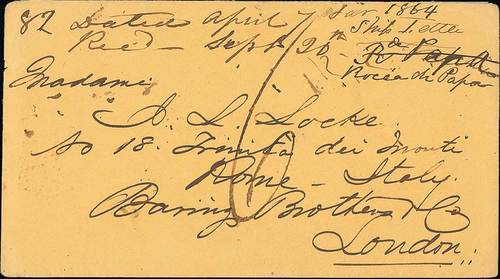 82 Dated April 7 1864
Ship Letter
Recd - Sept 20th
Rocca di Papa
Madame
A. L. Locke.
No 18. Trinita dei Monti
Rome - Italy.
Baring Brothers & Co
London